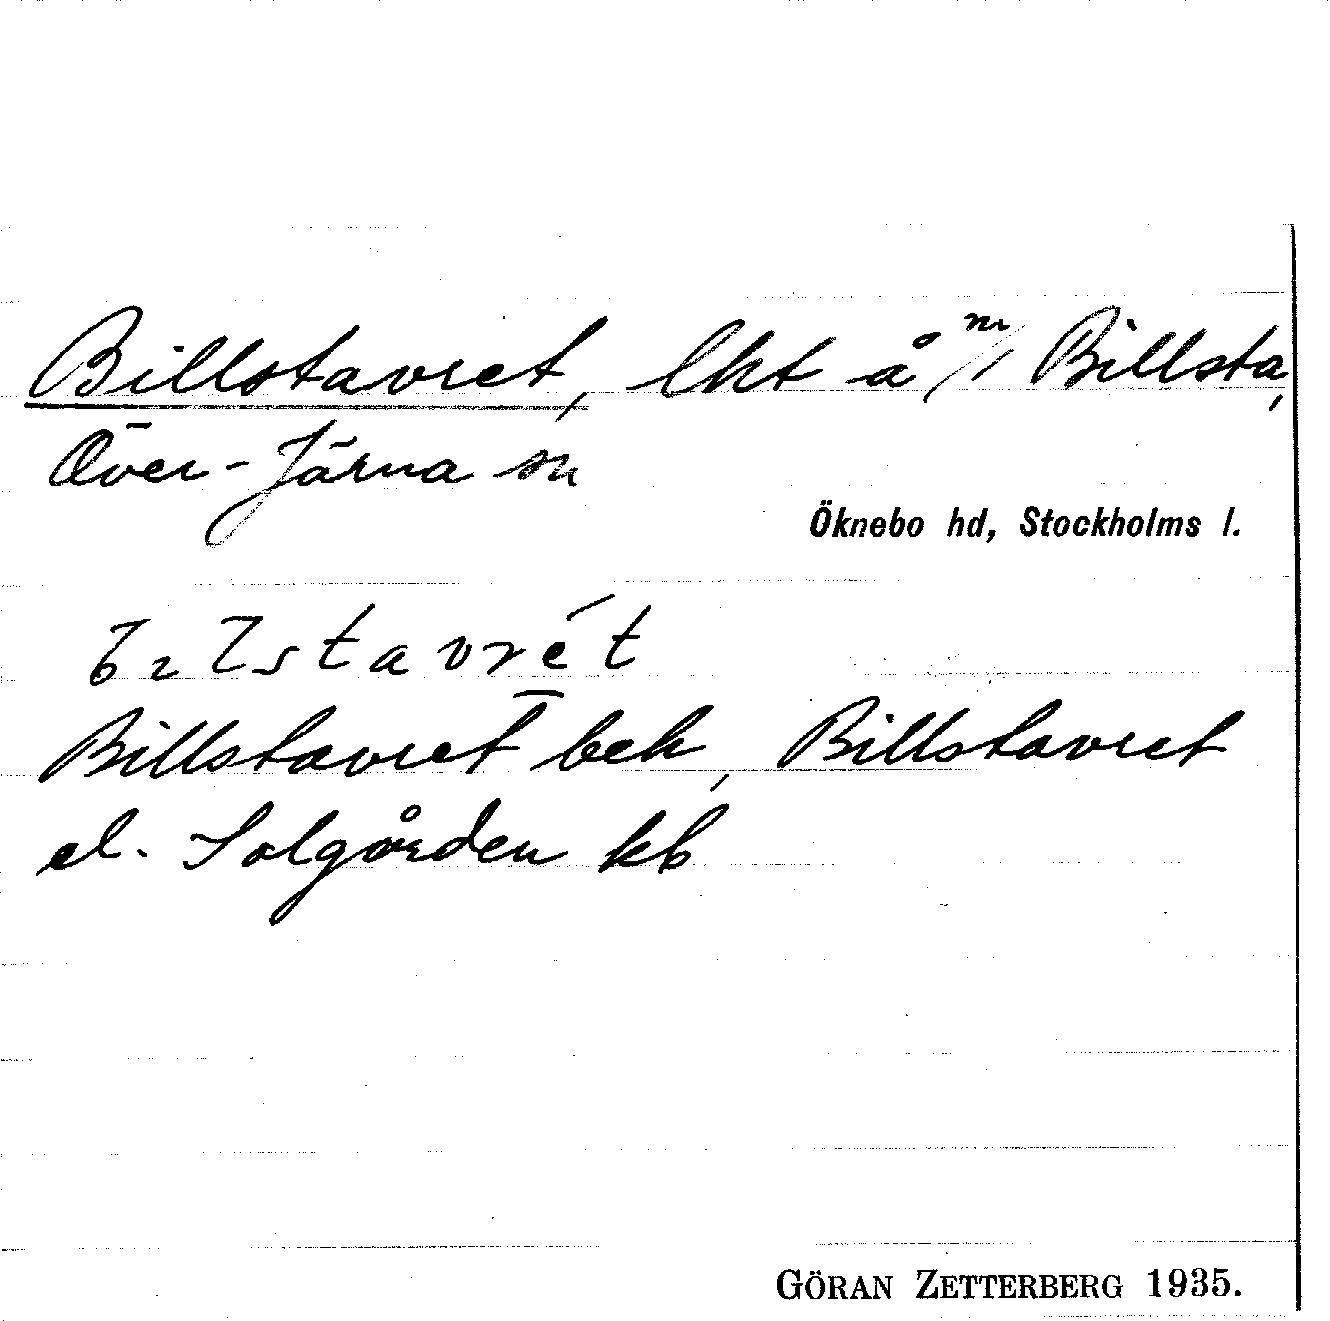 Billstavret, lht å nr/1 Billsta,
Över-Järna sn
Öknebo hd, Stockholms l.
Billstavret beh, Billstavret
el. Solgården kb
GÖRAN ZETTERBERG 1935.